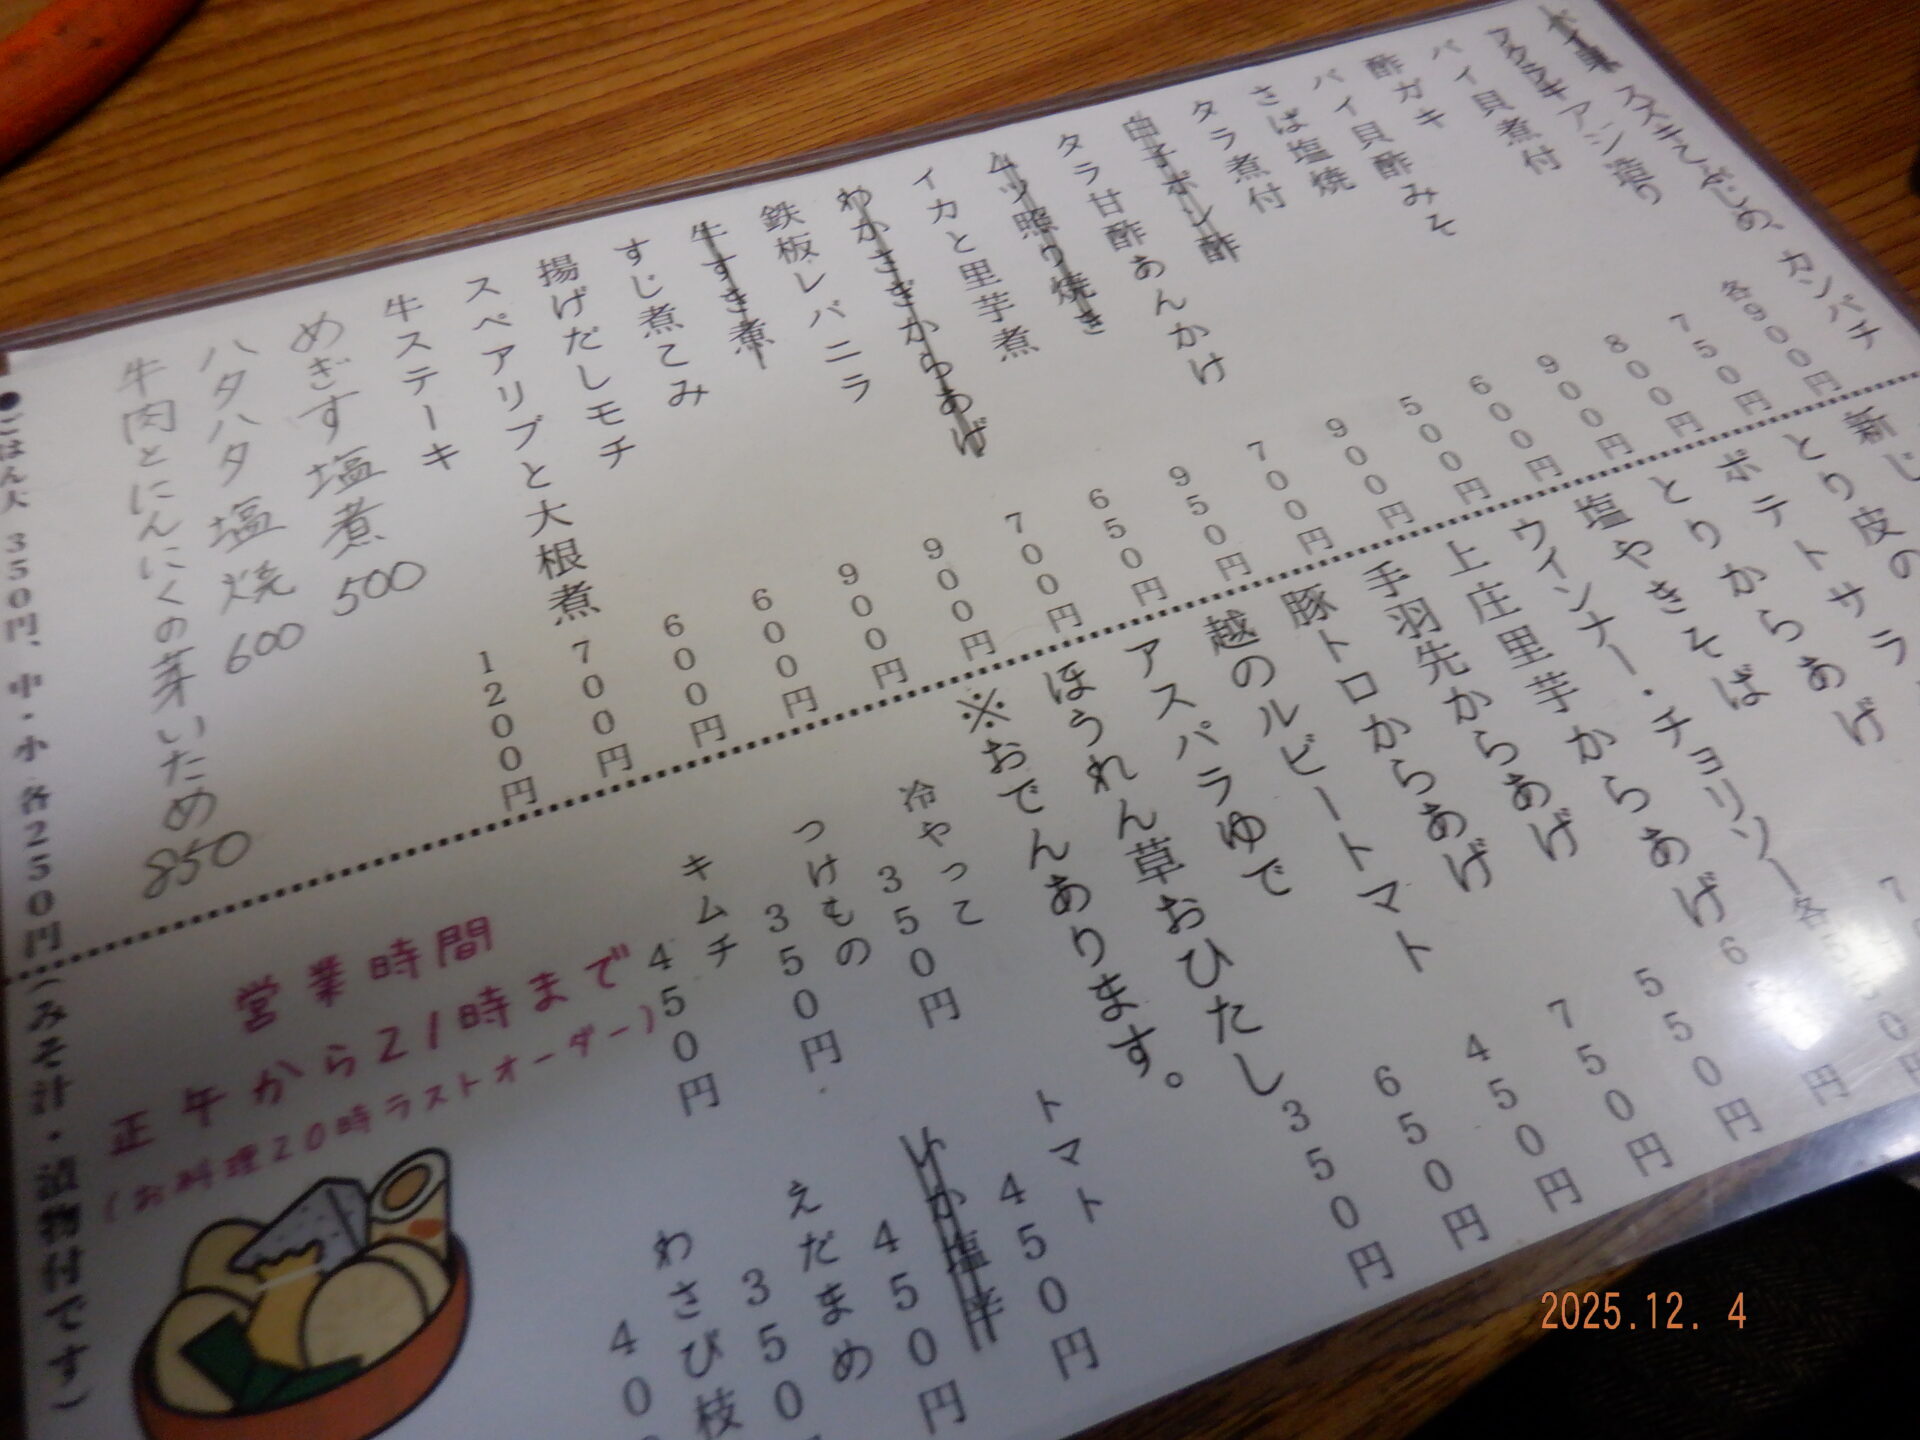 スズキ カンパチ
アジ造り 各900円
バイ貝煮付 750円
酢ガキ 800円
バイ貝酢みそ 900円
さば塩焼 600円
タラ煮付 500円
白子ポン酢 900円
タラ甘酢あんかけ 700円
ムツ照り焼き 950円
イカと里芋煮 650円
わかさぎからあげ 700円
鉄板レバニラ 900円
牛すき煮 900円
すじ煮こみ 600円
揚げだしモチ 600円
スペアリブと大根煮 700円
牛ステーキ 1200円
めぎす塩煮 500
ハタハタ塩焼 600
牛肉とにんにくの芽いため 850
新じ
とり皮の
ポテトサラ
とりからあげ
塩やきそば
ウインナー・チョリソー各550円
上庄里芋からあげ
手羽先からあげ 550円
豚トロからあげ 750円
越のルビートマト 450円
アスパラゆで 650円
ほうれん草おひたし 350円
※おでんあります。
冷やっこ 350円
つけもの 350円
キムチ 450円
トマト 450円
いか塩辛 450円
えだまめ 350
わさび枝 40
営業時間
正午から21時まで
(お料理20時ラストオーダー)
●ごはん大 350円、中・小 各250円(みそ汁・漬物付です)
2025.12. 4